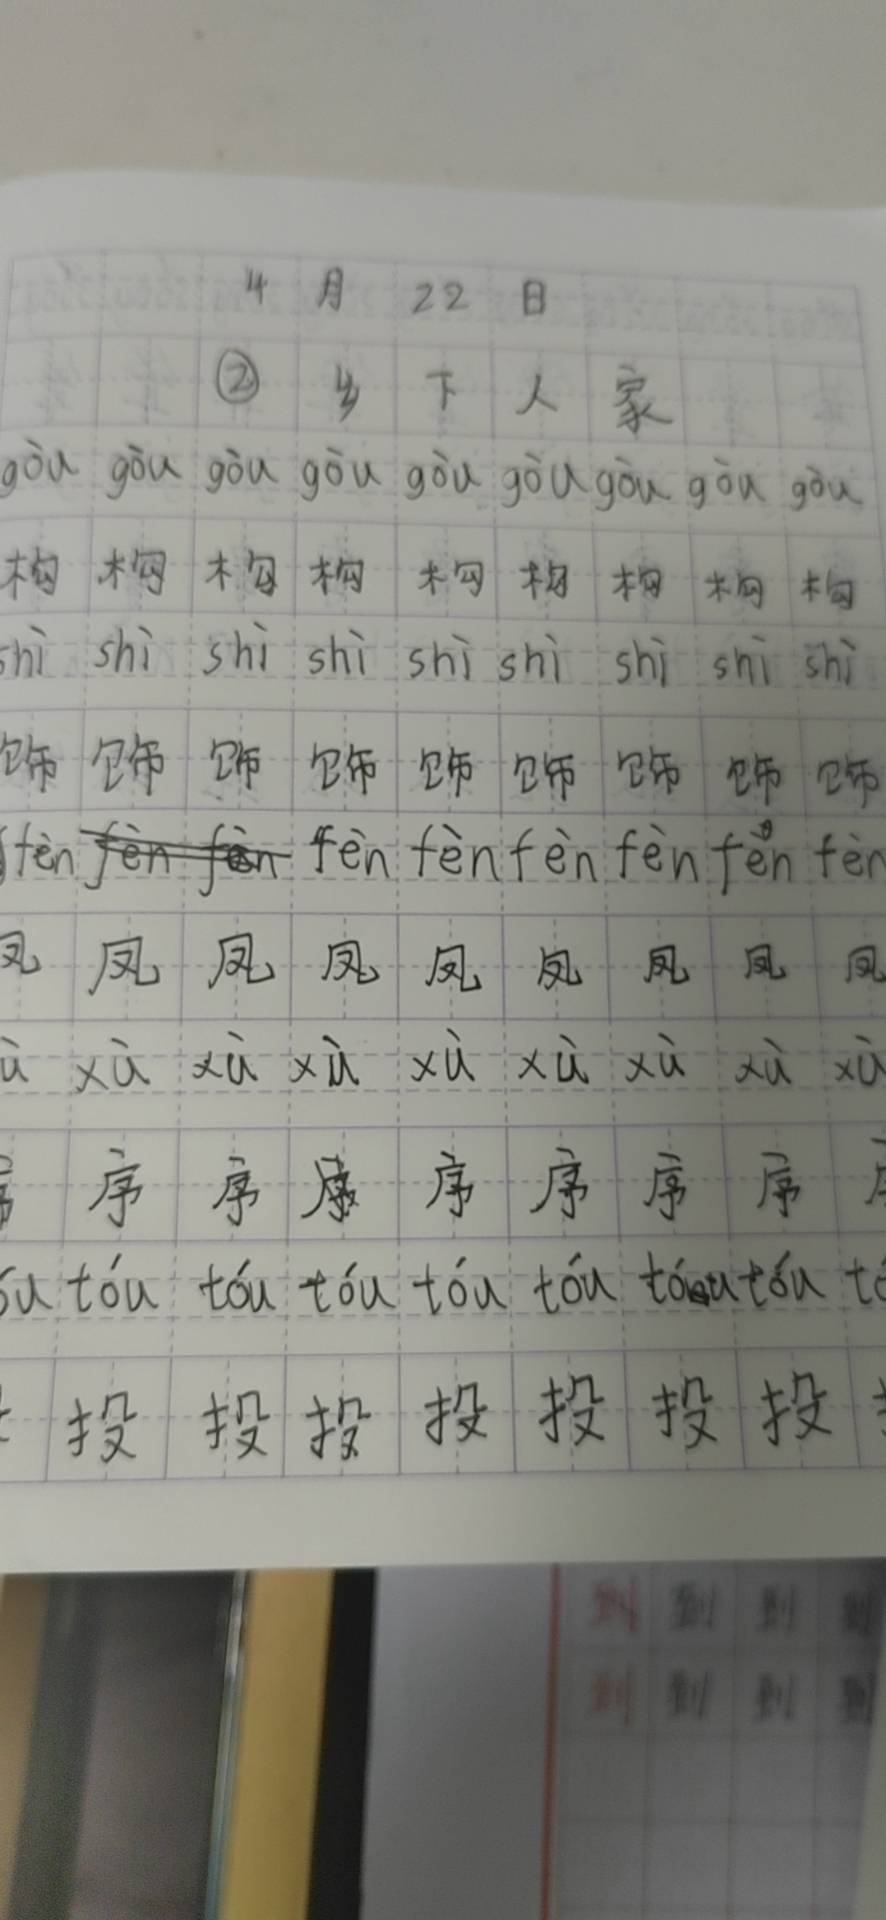 4月22日
② 乡下人家
gòu gòu gòu gòu gòu gòu gòu gòu gòu
构 构 构 构 构 构 构 构 构
shì shì shì shì shì shì shì shì shì
饰 饰 饰 饰 饰 饰 饰 饰 饰
fèn fèn fèn fèn fèn fèn fèn fèn fèn
凤 凤 凤 凤 凤 凤 凤 凤 凤
ù xù xù xù xù xù xù xù xù
序 序 序 序 序 序 序 序
óu tóu tóu tóu tóu tóu tóu tóu tó
投 投 投 投 投 投 投
到 到 到 到
到 到 到 到